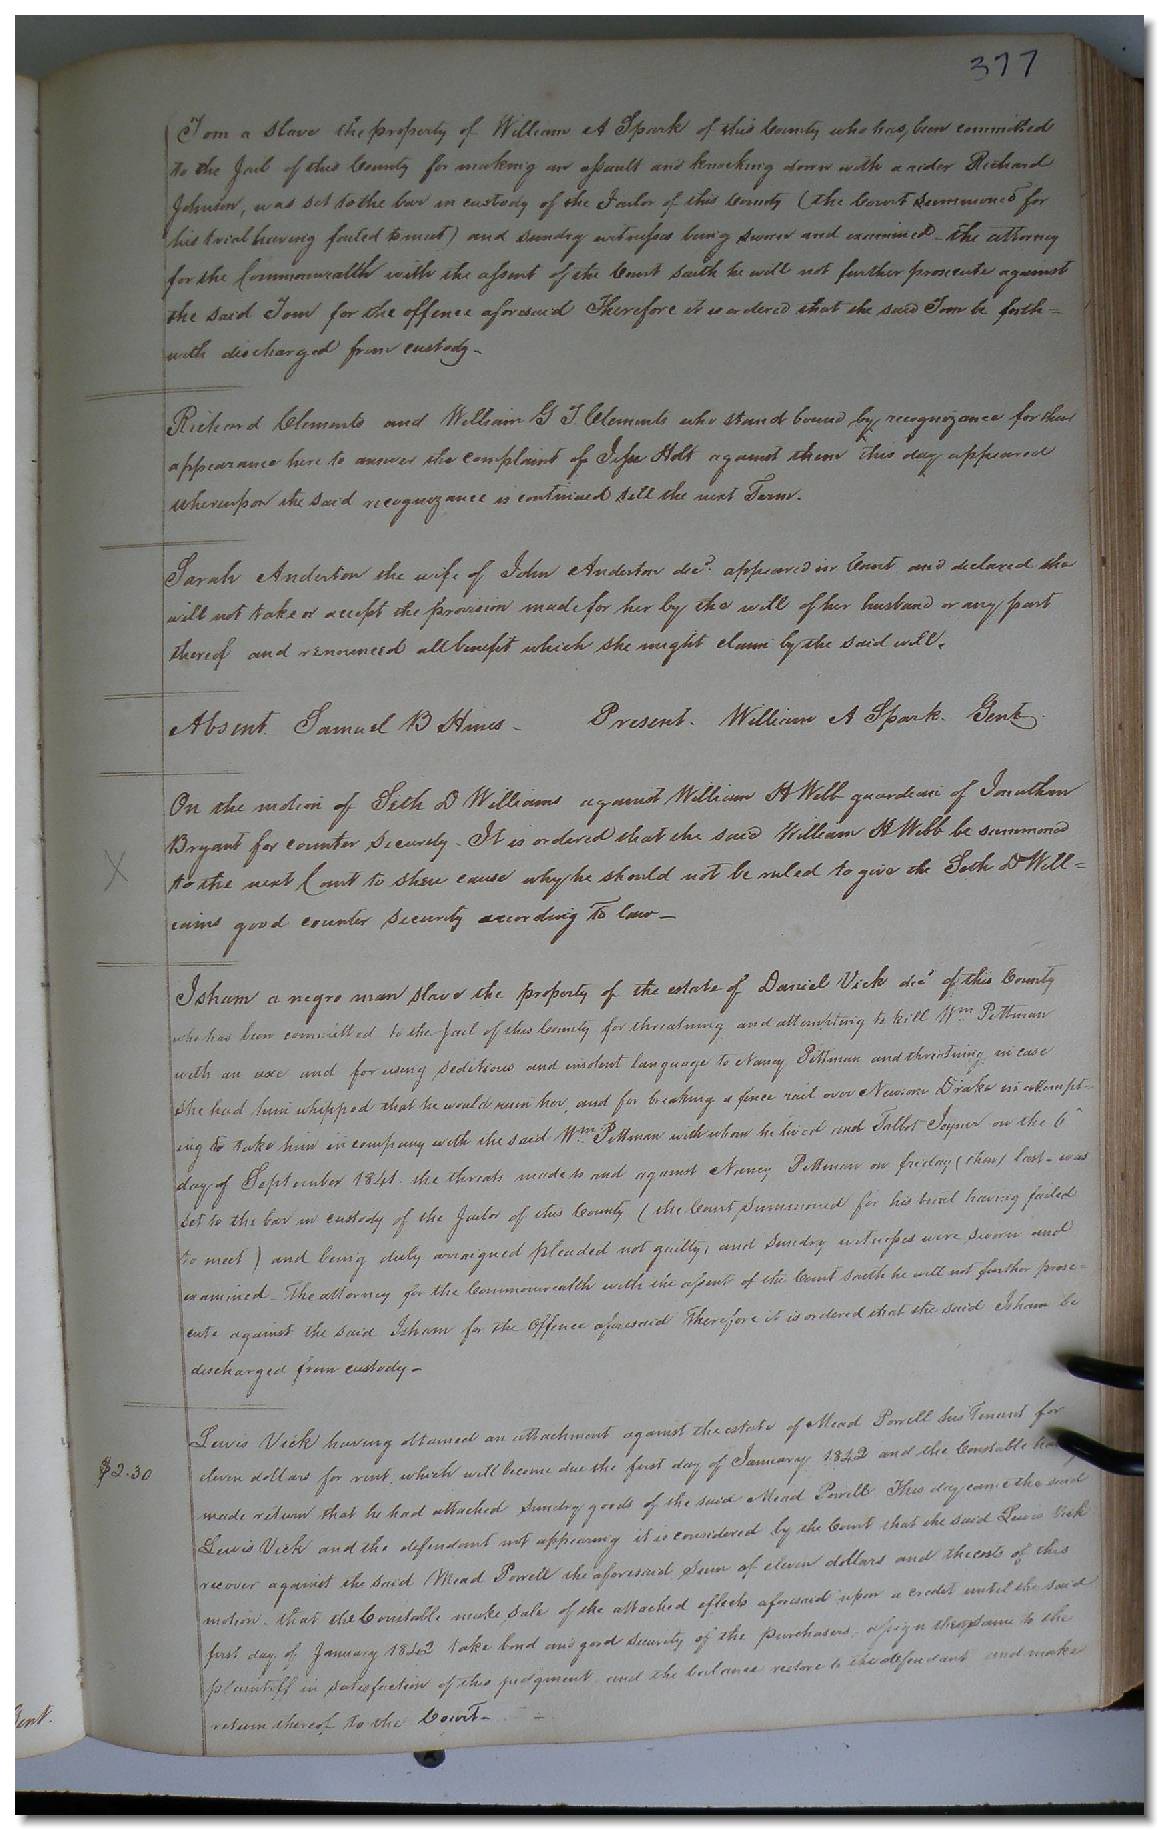 377
Tom a slave the property of William A Spark of this County who has, been committed
to the Jail of this County for making an assault and knocking down with a rider Richard
Johnson, was set to the bar in custody of the Jailor of this County (the Court summoned for
his trial having failed to meet) and sundry witnesses being sworn and examined - the attorney
for the Commonwealth with the assent of the Court saith he will not further prosecute against
the said Tom for the offence aforesaid Therefore it is ordered that the said Tom be forth=
with discharged from custody -
Richard Clements and William G T Clements who stand bound by recognizance for their
appearance here to answer the complaint of Jesse Holt against them this day appeared
whereupon the said recognizance is continued till the next Term.
Sarah Anderton the wife of John Anderton decd. appeared in Court and declared she
will not take or accept the provision made for her by the will of her husband or any part
thereof and renounced all benefit which she might claim by the said will.
Absent. Samuel B Hines - Present. William A Spark. Gent.
On the motion of Seth D Williams against William H Webb guardian of Jonathan
Bryant for counter Security. It is ordered that the said William H Webb be summoned
X to the next Court to shew cause why he should not be ruled to give the Seth D Will=
iams good counter security according to law -
Isham a negro man slave the property of the estate of Daniel Vick decd of this County
who has been committed to the Jail of this County for threatning and attempting to kill Wm Pittman
with an axe and for using seditious and insolent language to Nancy Pittman and thretning in case
she had him whipped that he would ruin her, and for breaking a fence rail over Newsom Drake in attempt-
ing to take him in company with the said Wm Pittman with whom he lived and Talbot Joyner on the 6
day of September 1841. the threats made to and against Nancy Pittman on friday (then) last - was
set to the bar in custody of the Jailor of this County (the Court summoned for his trial having failed
to meet) and being duly arraigned pleaded not guilty, and sundry witnesses were sworn and
examined - The attorney for the Commonwealth with the assent of the Court saith he will not further prose=
cute against the said Isham for the Offence aforesaid Therefore it is ordered that the said Isham be
discharged from custody -
Lewis Vick having obtained an attachment against the estate of Mead Powell his Tenant for
$2.30 eleven dollars for rent, which will become due the first day of January 1842 and the Constable
made return that he had attached sundry goods of the said Mead Powell This day came the said
Lewis Vick and the defendant not appearing it is considered by the Court that the said Lewis Vick
recover against the said Mead Powell the aforesaid Sum of eleven dollars and the costs of this
motion. that the Constable make sale of the attached effects aforesaid upon a credit until the said
first day of January 1842 take bond and good security of the purchasers, assign the same to the
plaintiff in satisfaction of this judgment and the balance restore to the defendant and make
return thereof to the Court -
Gent.